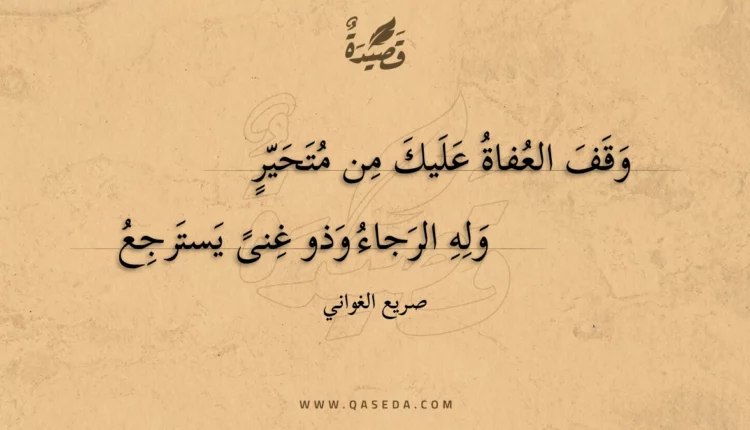 قَصِيْدَةٌ
وَقَفَ العُفاةُ عَلَيكَ مِن مُتَحَيّرٍ
وَلِهِ الرَجاءُ وَذو غِنىً يَستَرجِعُ
صريع الغواني
WWW.QASEDA.COM